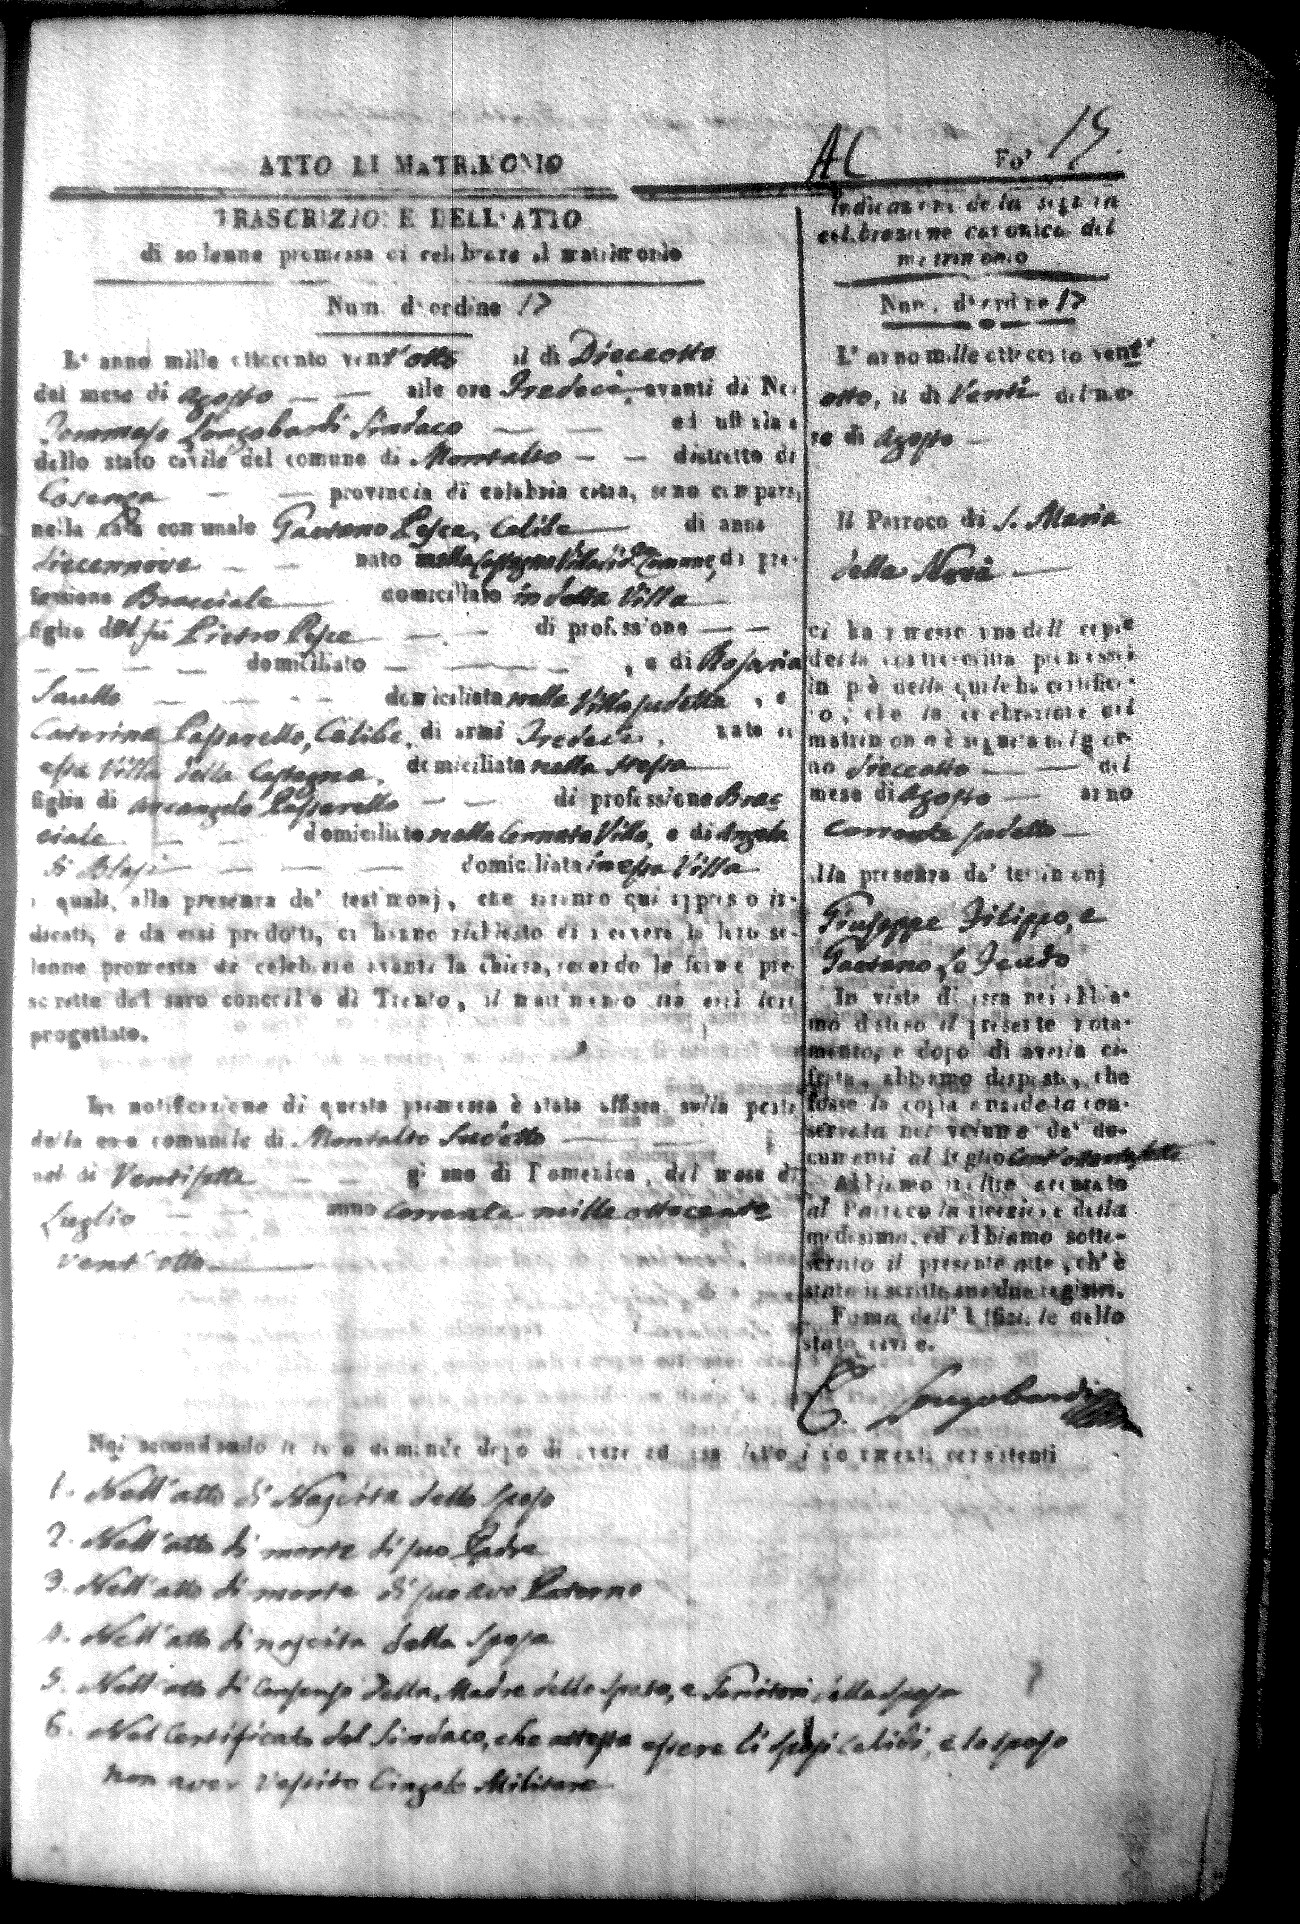 AC
Fo' 15.
ATTO DI MATRIMONIO
TRASCRIZIONE DELL'ATTO
di solenne promessa di celebrare il matrimonio
Num. d'ordine 17
L' anno mille ottocento vent'otto il dì Dieceotto
del mese di Agosto — — alle ore Tredeci, avanti di Noi
Tommaso Longobardi Sindaco — — ed uffiziale
dello stato civile del comune di Montalto — — distretto di
Cosenza — — provincia di calabria citra, sono comparsi,
nella casa comunale Gaetano Pepe, Celibe — di anni
diecennove — — nato nella Castagna Villa di Comune, di pro-
fessione Bracciale — domiciliato in detta Villa
figlio del fù Pietro Pepe — — di professione — —
— — — — domiciliato — — — , e di Rosaria
Saullo — — — — domiciliata nella Villa sudetta , e
Caterina Passarello, Celibe, di anni Tredeci, nata in
essa Villa della Castagna, domiciliata nella stessa
figlia di Arcangelo Passarello — — di professione Brac
ciale — — domiciliato nella cennata Villa, e di Angela
di Blasi — — — domiciliata in essa Villa
i quali, alla presenza de' testimonj, che saranno qui appresso in-
dicati, e da essi prodotti, ci hanno richiesto di ricevere la loro so-
lenne promessa di celebrare avanti la chiesa, secondo le forme pre-
scritte dal sacro concilio di Trento, il matrimonio tra essi loro
progettato.
La notificazione di questa promessa è stata affissa sulla porta
della casa comunale di Montalto Sudetto — — —
nel dì Ventisette — — giorno di Domenica, del mese di
Luglio — — anno corrente mille ottocento
vent'otto —
Noi secondando le loro dimande dopo di avere ad essi letto i documenti consistenti
1. Nell'atto di Nascita dello sposo
2. Nell'atto di morte di suo Padre
3. Nell'atto di morte di suo avo Paterno
4. Nell'atto di nascita della sposa
5. Nell'atto di consenso della Madre dello sposo, e Genitori della sposa
6. Nel Certificato del Sindaco, che attesta essere li sposi celibi, e lo sposo
non aver vestito Cingolo Militare
Indicazione della seguita
celebrazione canonica del
matrimonio
Num. d'ordine 17
L' anno mille ottocento vent'
otto, il dì Venti del me-
se di Agosto —
Il Parroco di S. Maria
della Nova —
ci ha rimesso una delle copie
della controscritta promessa
in piè della quale ha certifica-
to, che la celebrazione del
matrimonio è seguita nel gior-
no dieceotto — — del
mese di Agosto — anno
corrente sudetto —
Alla presenza de' testimonj
Giuseppe Filippo, e
Gaetano Lo Feudo
In vista di essa noi abbia-
mo disteso il presente nota-
mento, e dopo di averla ci-
frata, abbiamo disposto, che
fosse la copia anzidetta con-
servata nel volume de' do-
cumenti al foglio Cent'ottantasette
Abbiamo inoltre accusato
al Parroco la ricezione della
medesima, ed abbiamo sotto-
scritto il presente atto, ch'è
stato inscritto sui due registri.
Firma dell' Uffiziale dello
stato civile.
T. Longobardi